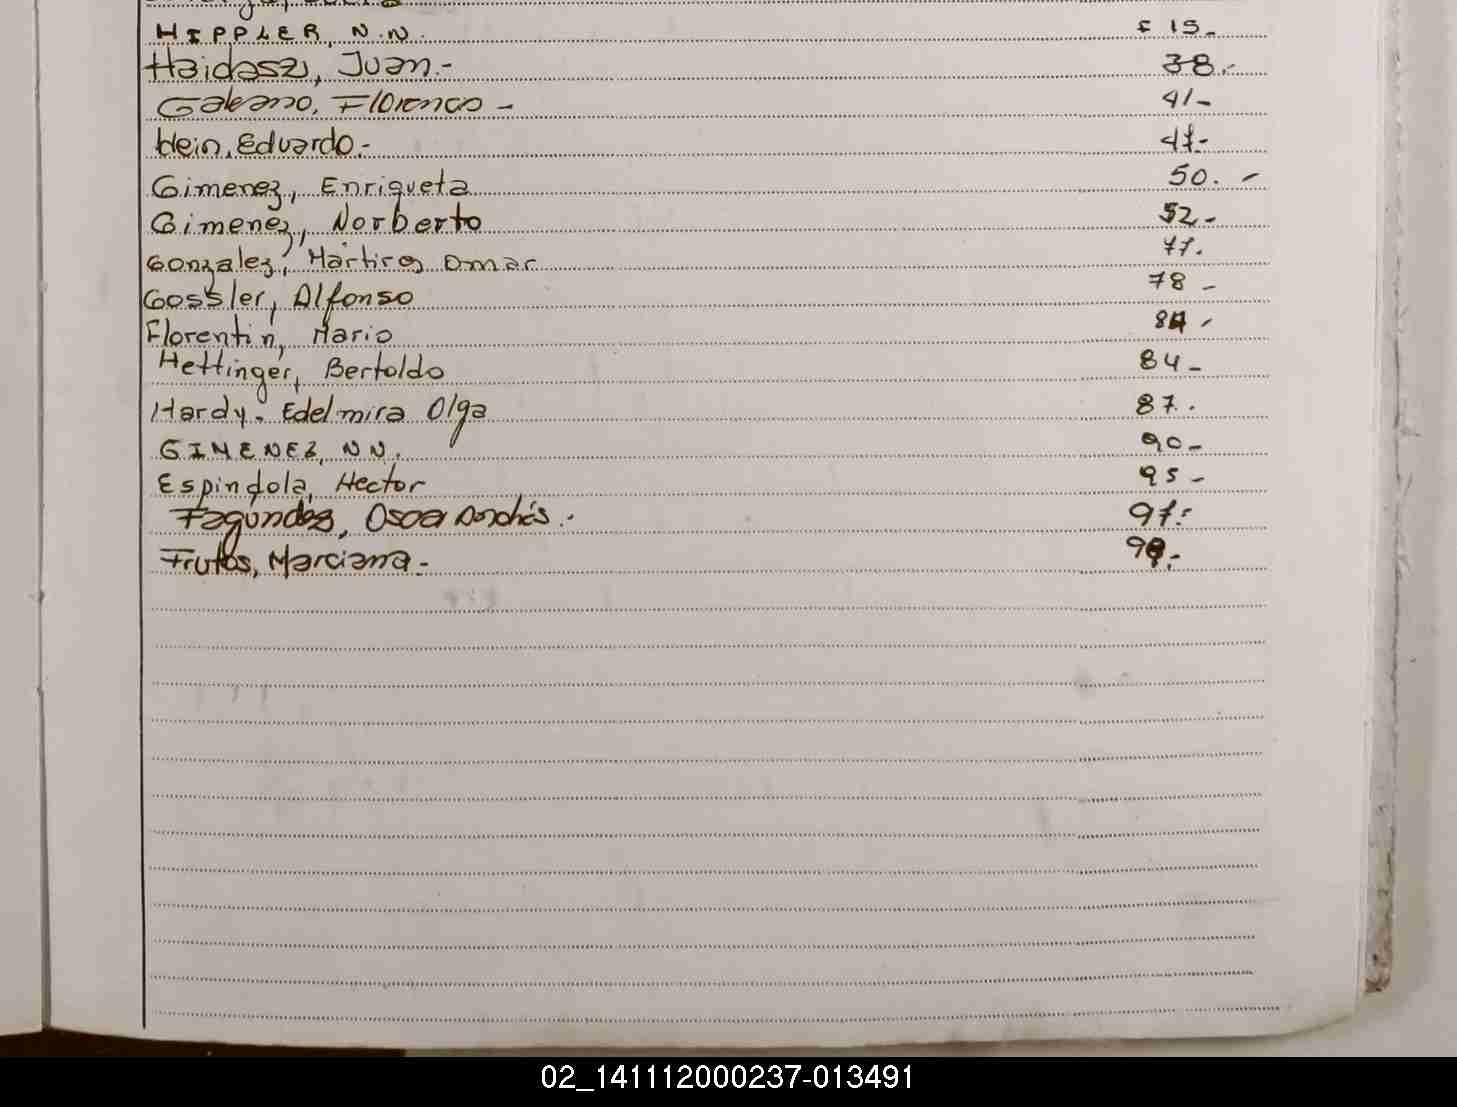 HIPPLER, N.N. F 15.-
Haidasz, Juan.- 38.-
Galeano, Florencio - 41-
Hein, Eduardo.- 47.-
Gimenez, Enriqueta 50. -
Gimenez, Norberto 52.-
Gonzalez, Martires Omar 77.
Gossler, Alfonso 78 -
Florentin, Mario -
Hettinger, Bertoldo 84 -
Hardy. Edelmira Olga 87.
GIMENEZ, NN. 90-
Espindola, Hector 95 -
Fagundez, Oscar Andrés.- 97.-
Frutos, Marciana.-
02_141112000237-013491